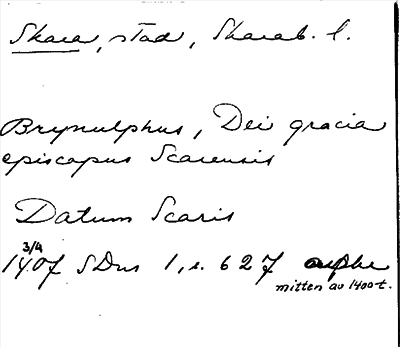 Skara, stad, Skarab. l.
Brynulphus, Dei gracia
episcopus Scarensis
Datum Scaris
3/4
1407 SDns 1, s. 627 avskr
mitten av 1400-t.